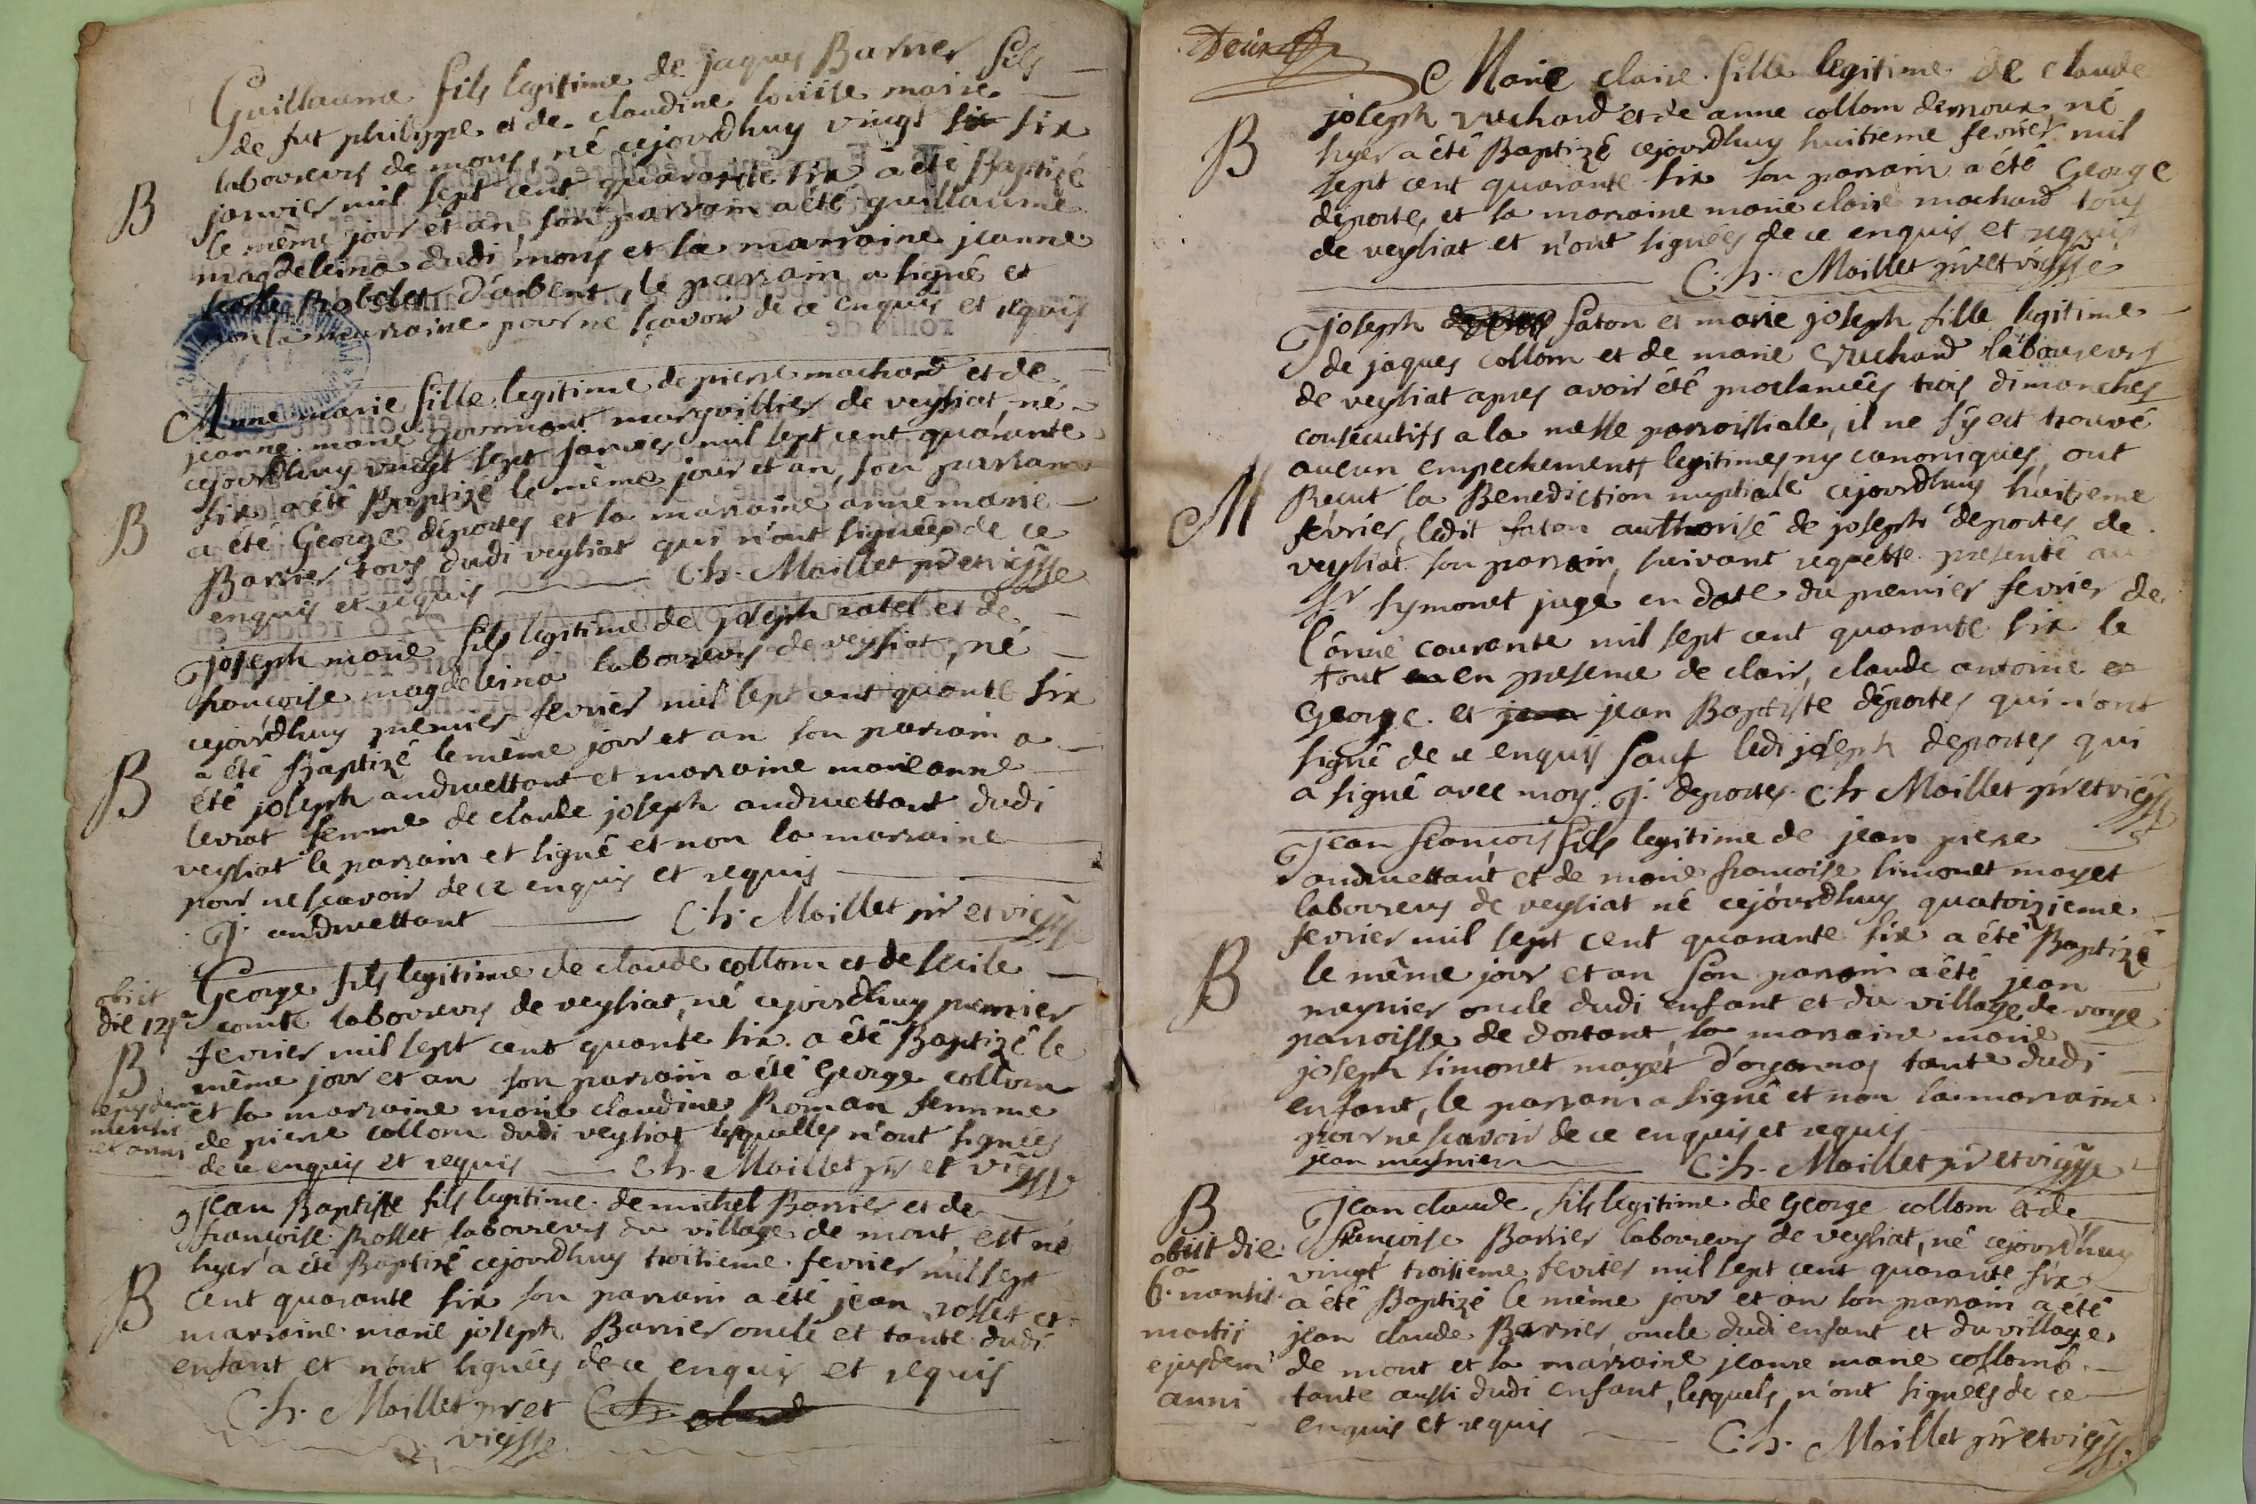 Guillaume fils legitime de jaques Barrier fils
de fut philippe et de claudine louise marie
laboureurs de mons, né cejourdhuy vingt six
janvier mil sept cent quarante six a été Baptizé
B
le même jour et an, son parrain a été guillaume
magdeleina dudi mons et la marraine jeanne
Robelet d'arbent, le parrain a signé et
non la marraine pour ne sçavoir de ce enquis et requis
Anne marie fille legitime de pierre machard et de
jeanne marie marguillier de veyziat, né
cejourdhuy vingt sept janvier mil sept cent quarante
six a été Baptizé le même jour et an, son parrain
B
a été George déportes et la marraine anne marie
Barrier tous dudi veyziat qui n'ont signées de ce
enquis et requis C.h. Maillet prêt vic
joseph marie fils legitime de joseph ratel et de
francoise magdeleina laboureurs de veyziat, né
cejourdhuy premier fevrier mil sept cent quante six
a été Baptizé le même jour et an son parrain a
B
été joseph andruettant et marraine marie anne
levrat femme de claude joseph andruettant dudi
veyziat le parrain et signé et non la marraine
pour ne sçavoir de ce enquis et requis
J. andruettant C.h. Maillet prêt et vic
George fils legitime de claude collom et de
obiit
die 12a
comte laboureurs de veyziat, né cejourdhuy premier
fevrier mil sept cent quante six a été Baptizé le
B
même jour et an son parrain a été George collom
ejusdem
mensis
et anni
et la marraine marie claudine Roman femme
de pierre collom dudi veyziat lesquelles n'ont signées
de ce enquis et requis C.h. Maillet prê et vic
jean Baptiste fils legitime de michel Barrier et de
françoise Rollet laboureurs du village de mont, est né
hyer a été Baptizé cejourdhuy troisieme fevrier mil sept
B
cent quarante six son parrain a été jean rollet et
marraine marie joseph Barrier oncle et tante dudi
enfant et n'ont signées de ce enquis et requis
C.h. Maillet prêt
vic
Deux
Marie claire fille legitime de claude
joseph vuchard et de anne collom demoux né
B
hyer a été Baptizé cejourdhuy huitieme fevrier mil
sept cent quarante six son parrain a été George
déportes, et la marraine marie claire machard tous
de veyziat et n'ont signées de ce enquis et requis
C.h. Maillet prêt et vic
joseph faton et marie joseph fille legitime
de jaques collom et de marie vuchard laboureurs
de veyziat apres avoir été proclamées trois dimanches
consécutifs a la messe parroissiale, il ne s'y est trouvé
aucun empechements legitimes ny canoniques, ont
M
Recut la Benediction nuptiale cejourdhuy huitieme
février, ledit faton authorisé de joseph déportes de
veyziat son parrain, suivant requette presenté au
Sr symonet juge en date du premier fevrier de
l'année courante mil sept cent quarante six le
tout en presence de clair, claude antoine et
George et jean Baptiste déportes qui n'ont
signé de ce enquis sauf ledi joseph deportes qui
a signé avec moy. J. deportes. C.h Maillet prêt vic
jean francois fils legitime de jean piere
andruettant et de marie francoise simonet mayet
laboureurs de veyziat né cejourdhuy quatorzieme
fevrier mil sept cent quarante six a été Baptizé
B
le même jour et an son parrain a été jean
meynier oncle dudi enfant et du village de voye
parroisse de dortant, la marraine marie
joseph simonet mayet d'oyonnas tante dudi
enfant, le parrain a signé et non la marraine
pour ne sçavoir de ce enquis et requis
jean mesnier C.h. Maillet prêt et vic
B
obiit die
6a mensis
martii
ejusdem
anni
jean claude fils legitime de George collom et de
françoise Barrier laboureurs de veyziat, né cejourdhuy
vingt troisieme fevrier mil sept cent quarante six
a été Baptizé le même jour et an son parrain a été
jean claude Barrier oncle dudi enfant et du village
de mont et la marraine jeanne marie collomb
tante aussi dudi enfant, lesquels n'ont signées de ce
enquis et requis
C.h. Maillet prêt et vic